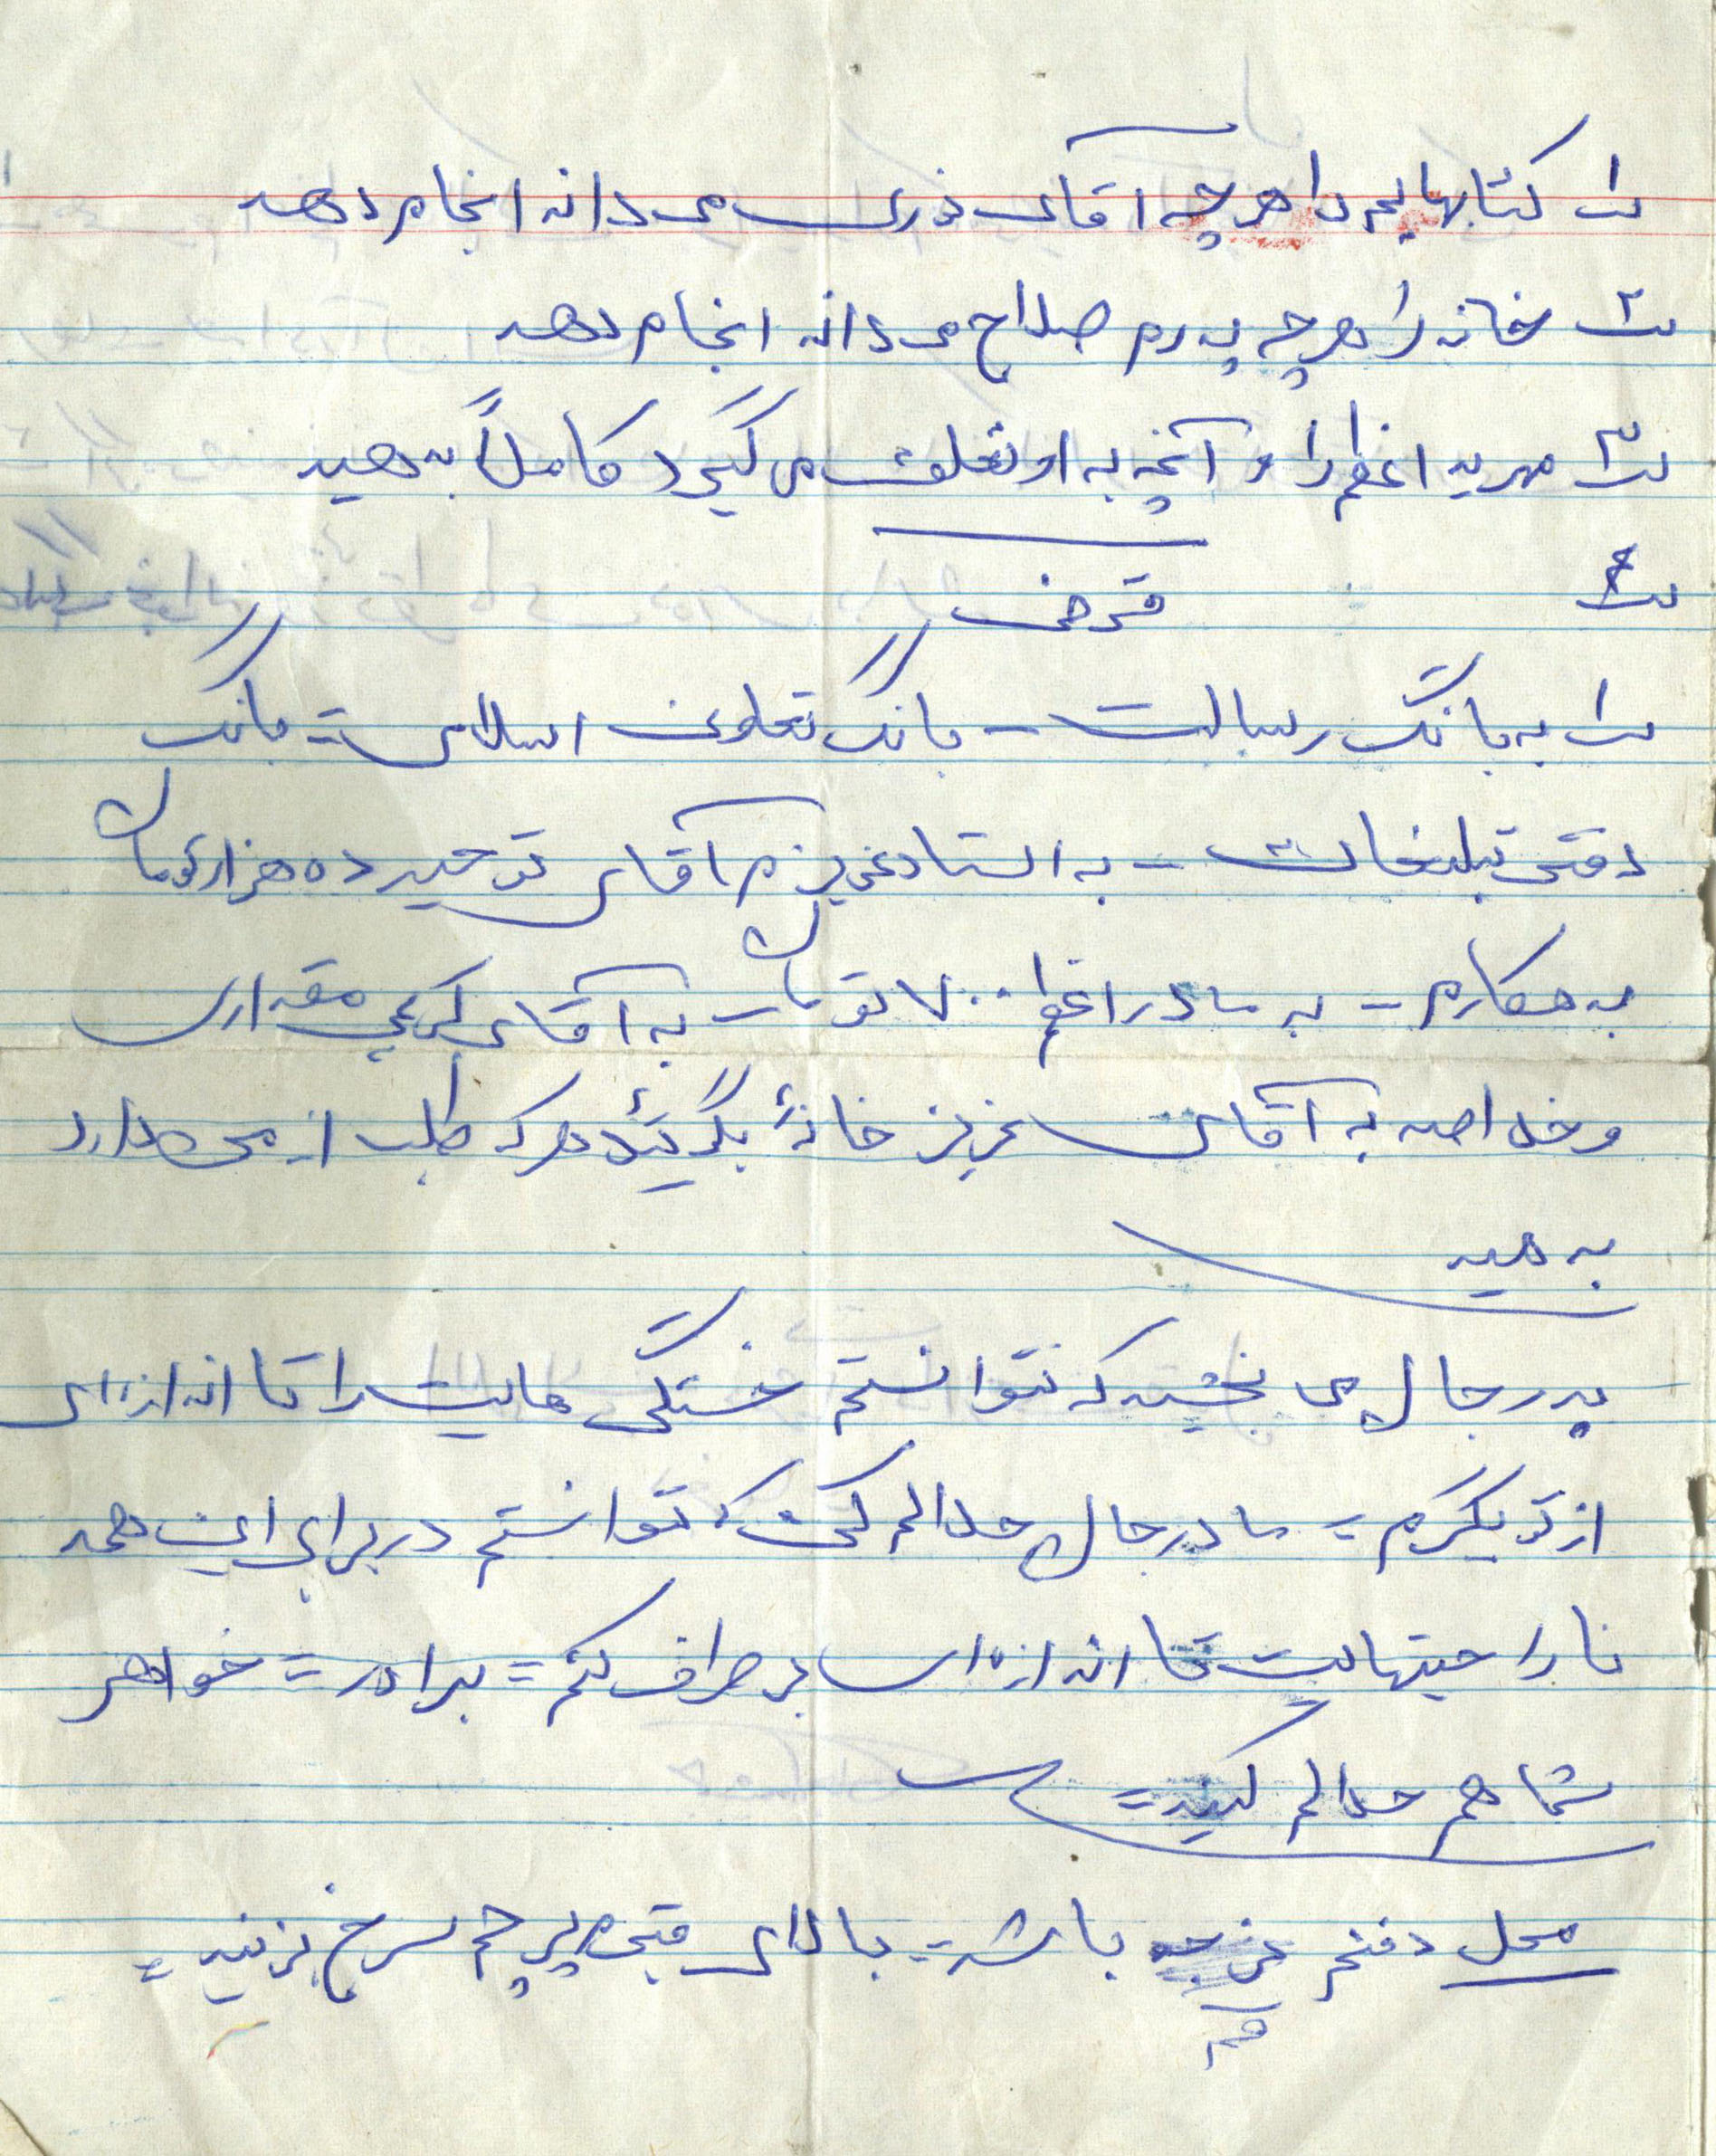 ۱ـ کتابهایم را هر چه آقای نوری می داند انجام دهد
۲ـ خانه را هر چه پدرم صلاح می داند انجام دهد
۳ـ مهریه اعظم را و آنچه به او تعلق می گیرد کاملاً بدهید
۴ـ قرض
۱ـ به بانک رسالت - بانک تعاون اسلامی - بانک
دفتر تبلیغات - به استاد عزیزم آقای توحید ده هزار تومان
به مکارم - به مادر اعظم ۷۰۰ تومان - به آقای کریمی مقداری
و خلاصه به آقای عزیز خانی بگوئید هر که طلب از من دارد
بدهید
پدر جان می بخشید که نتوانستم خستگی هایت را تا اندازه ای
از تو بگیرم - مادر جان حلالم کن که نتوانستم در برابر این همه
ناراحتیهایت تا اندازه ای برطرف کنم - برادر - خواهر
شما هم حلالم کنید -
محل دفنم باشد - بالای قبرم پرچم سرخ بزنید
قم